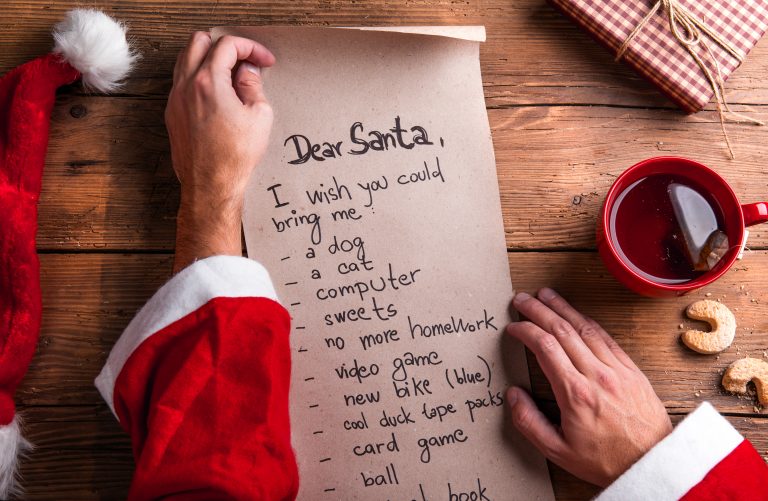 Dear Santa,
I wish you could
bring me:
- a dog
- a cat
- computer
- sweets
- no more homework
- video game
- new bike (blue)
- cool duck tape packs
- card game
- ball
book